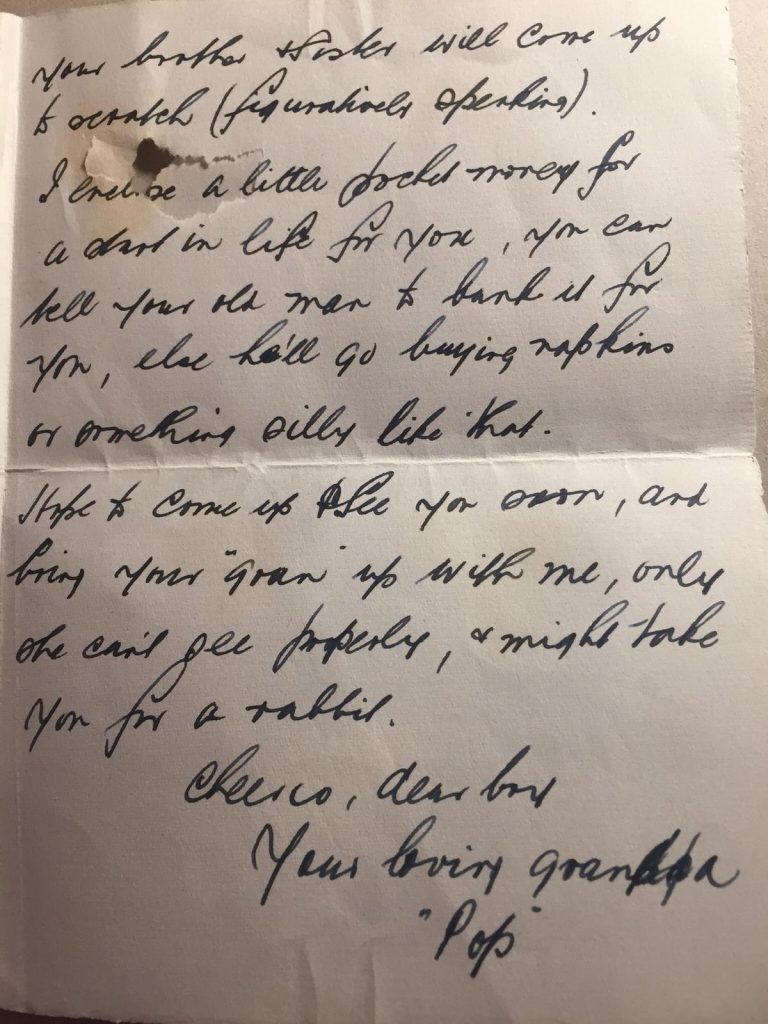 your brother & Sister will come up
to scratch (figuratively speaking).
I enclose a little pocket money for
a start in life for you, you can
tell your old man to bank it for
you, else he'll go buying napkins
or something silly like that.
Hope to come up & See you soon, and
bring your "gran" up with me, only
she can't see properly, & might take
you for a rabbit.
Cheerio, dear boy
Your loving grandpa
"Pop"